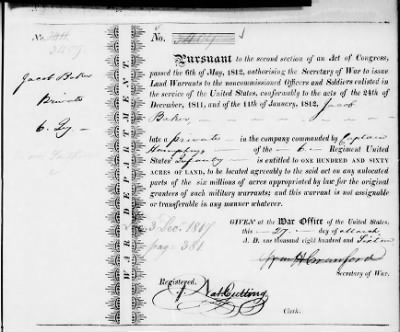 No.
Jacob Baker
Private
6. Iy
WAR DEPARTMENT
No.
PURSUANT to the second section of an Act of Congress,
passed the 6th of May, 1812, authorising the Secretary of War to issue
Land Warrants to the noncommissioned Officers and Soldiers enlisted in
the service of the United States, conformably to the acts of the 24th of
December, 1811, and of the 11th of January, 1812, Jacob
Baker,
late a private in the company commanded by Captain
Humphreys of the 6 Regiment United
States' Infantry is entitled to ONE HUNDRED AND SIXTY
ACRES OF LAND, to be located agreeably to the said act on any unlocated
parts of the six millions of acres appropriated by law for the original
grantees of such military warrants; and this warrant is not assignable
or transferable in any manner whatever.
3 Dec: 1817
page 381
GIVEN at the War Office of the United States,
this 27 day of March
A. D. one thousand eight hundred and Sixteen
Wm H Crawford
Secretary of War.
Registered,
Nat Cutting
Clerk.